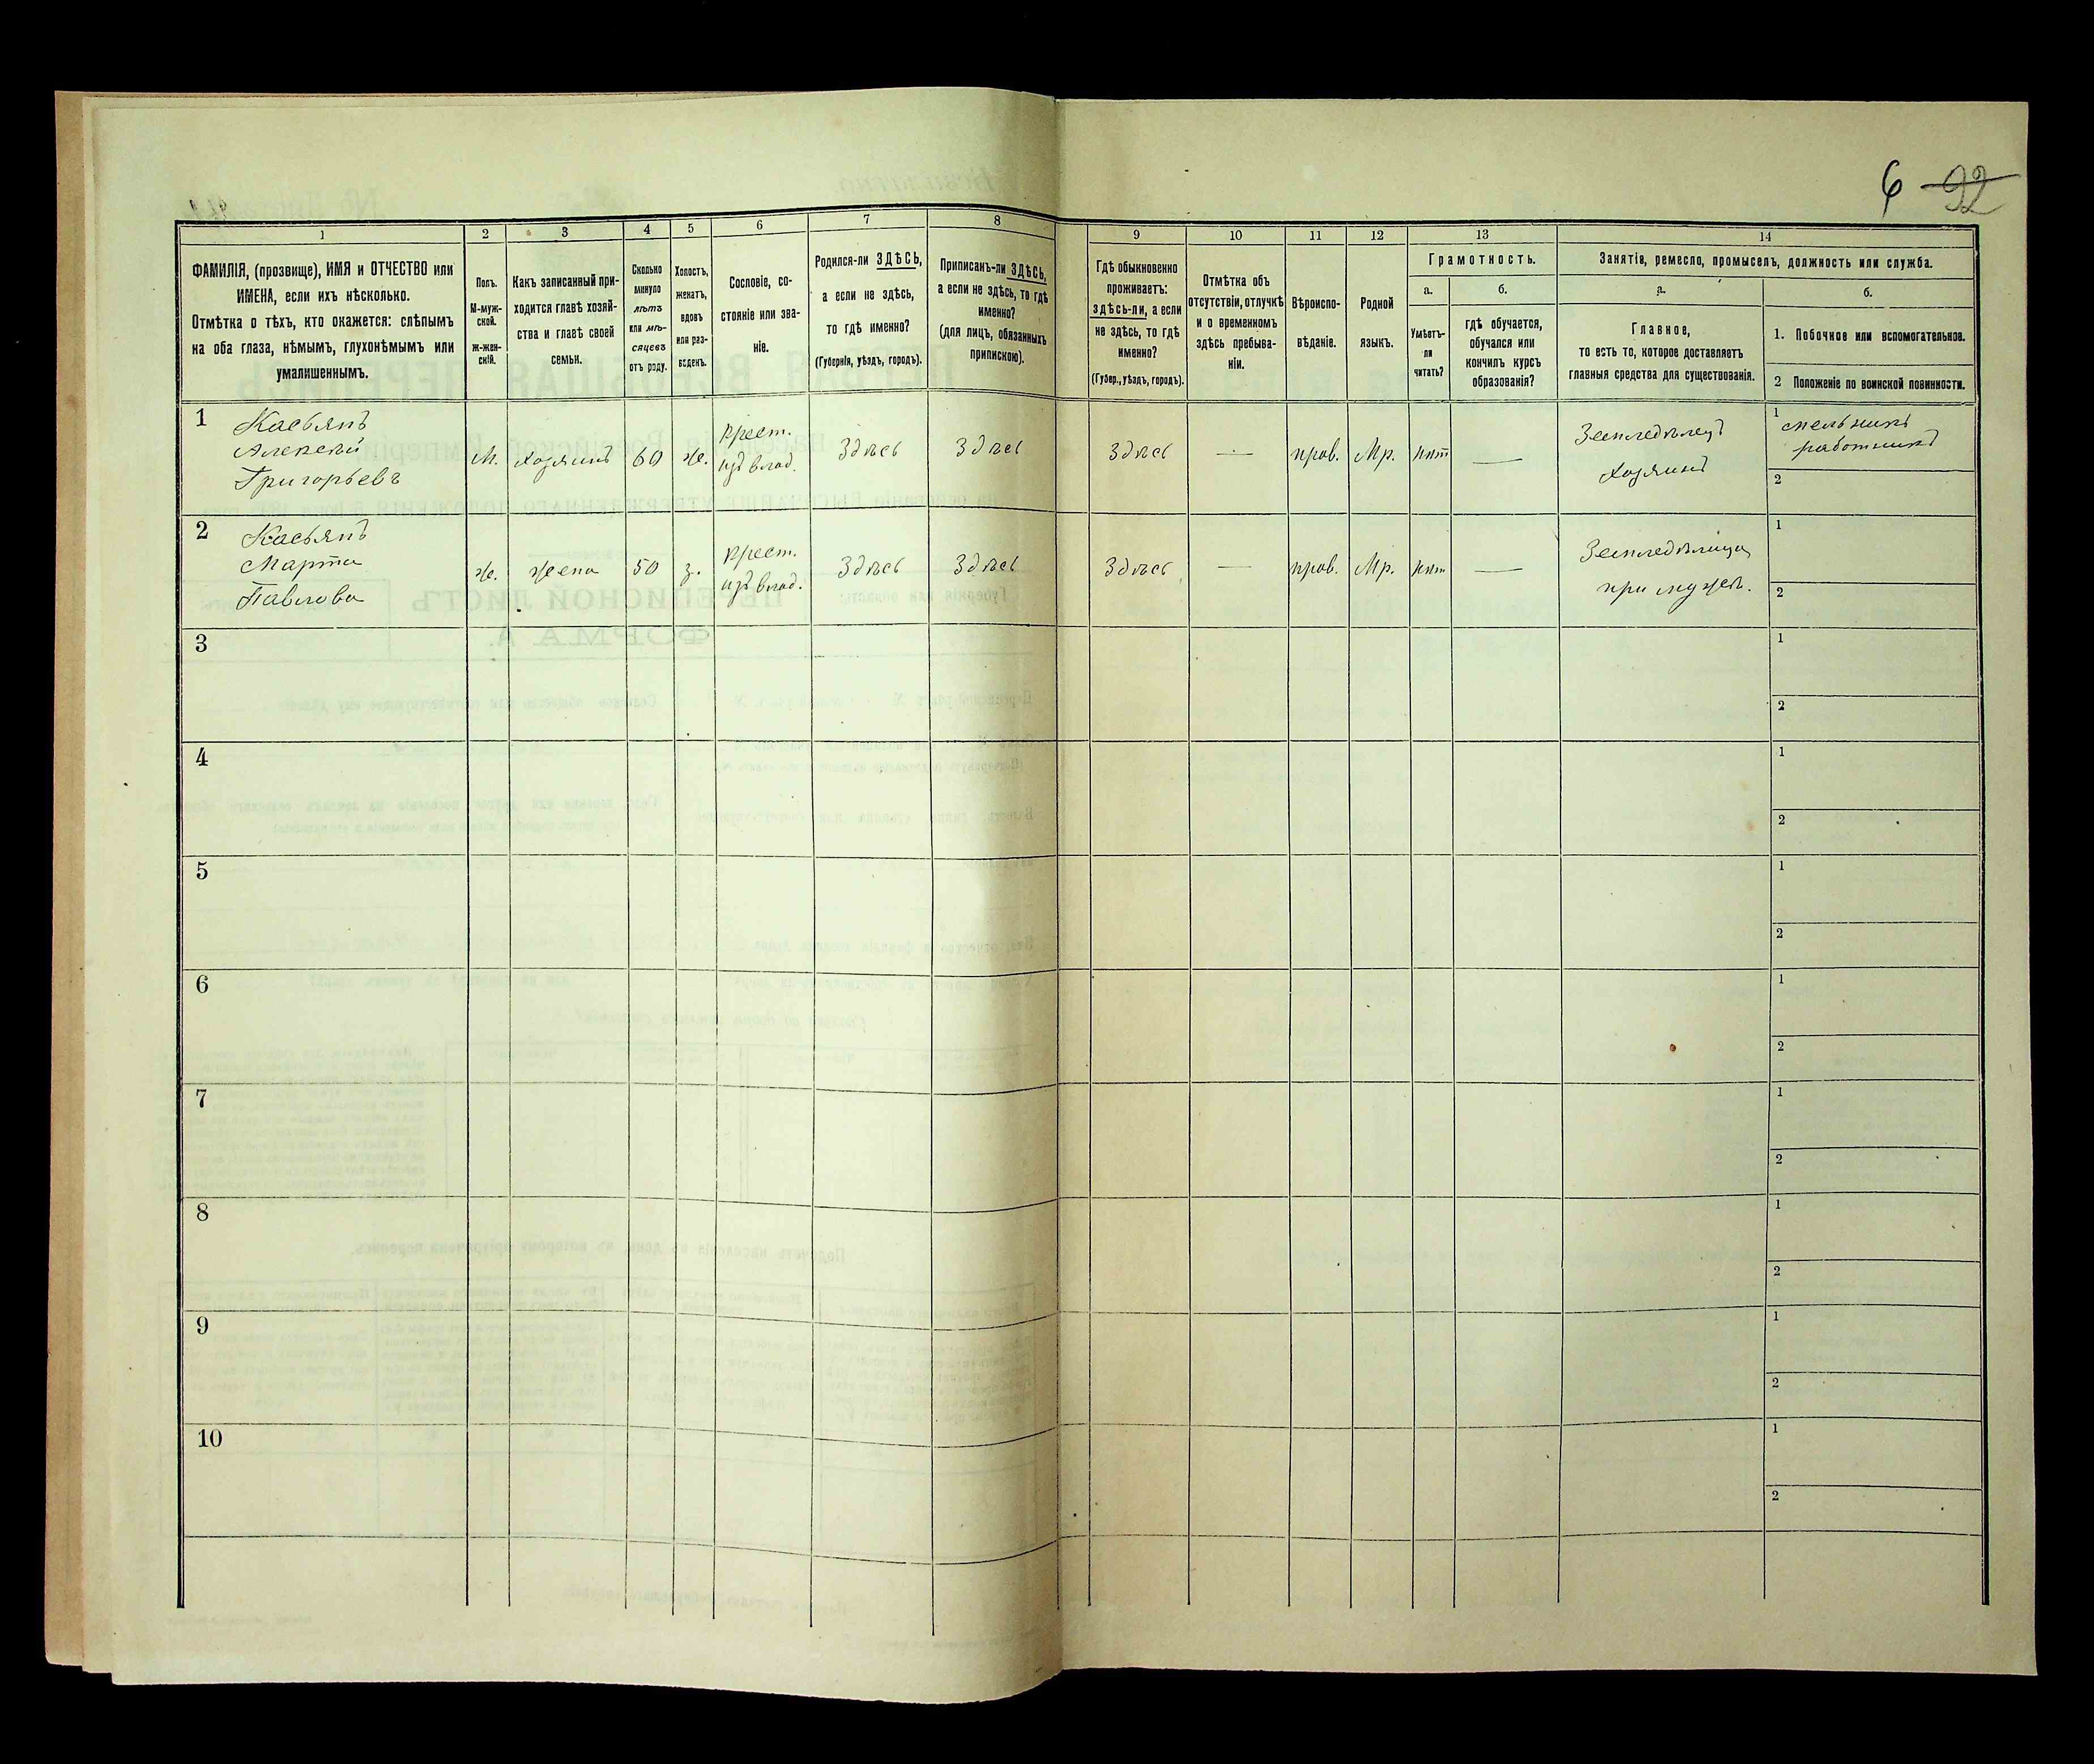 6 92
1
2
3
4
5
6
7
8
9
10
11
12
13
14
ФАМИЛІЯ, (прозвище), ИМЯ и ОТЧЕСТВО или
ИМЕНА, если ихъ нѣсколько.
Отмѣтка о тѣхъ, кто окажется: слѣпымъ
на оба глаза, нѣмымъ, глухонѣмымъ или
умалишеннымъ.
Полъ.
М-муж-
ской.
Ж-жен-
скій.
Какъ записанный при-
ходится главѣ хозяй-
ства и главѣ своей
семьи.
Сколько
минуло
лѣтъ
или мѣ-
сяцевъ
отъ роду.
Холостъ,
женатъ,
вдовъ
или раз-
веденъ.
Сословіе, со-
стояніе или зва-
ніе.
Родился-ли ЗДѢСЬ,
а если не здѣсь,
то гдѣ именно?
(Губернія, уѣздъ, городъ).
Приписанъ-ли ЗДѢСЬ,
а если не здѣсь, то гдѣ
именно?
(для лицъ, обязанныхъ
припискою).
Гдѣ обыкновенно
проживаетъ:
здѣсь-ли, а если
не здѣсь, то гдѣ
именно?
(Губер., уѣздъ, городъ).
Отмѣтка объ
отсутствіи, отлучкѣ
и о временномъ
здѣсь пребыва-
ніи.
Вѣроиспо-
вѣданіе.
Родной
языкъ.
Грамотность.
а.
Умѣетъ-
ли
читать?
б.
гдѣ обучается,
обучался или
кончилъ курсъ
образованія?
Занятія, ремесло, промыселъ, должность или служба.
а.
Главное,
то есть то, которое доставляетъ
главныя средства для существованія.
б.
1. Побочное или вспомогательное.
2 Положеніе по воинской повинности.
1
Касьянъ
Алексѣй
Григорьевъ
М.
Хозяинъ
60
ж.
крест.
изъ влад.
Здѣсь
Здѣсь
Здѣсь
—
прав.
Мр.
нѣт
—
Земледѣлецъ
Хозяинъ
1 мельникъ
работникъ
2
2
Касьянъ
Марта
Павлова
Ж.
Жена
50
з.
крест.
изъ влад.
Здѣсь
Здѣсь
Здѣсь
—
прав.
Мр.
нѣт
—
Земледѣлица
при мужѣ.
1
2
3
1
2
4
1
2
5
1
2
6
1
2
7
1
2
8
1
2
9
1
2
10
1
2